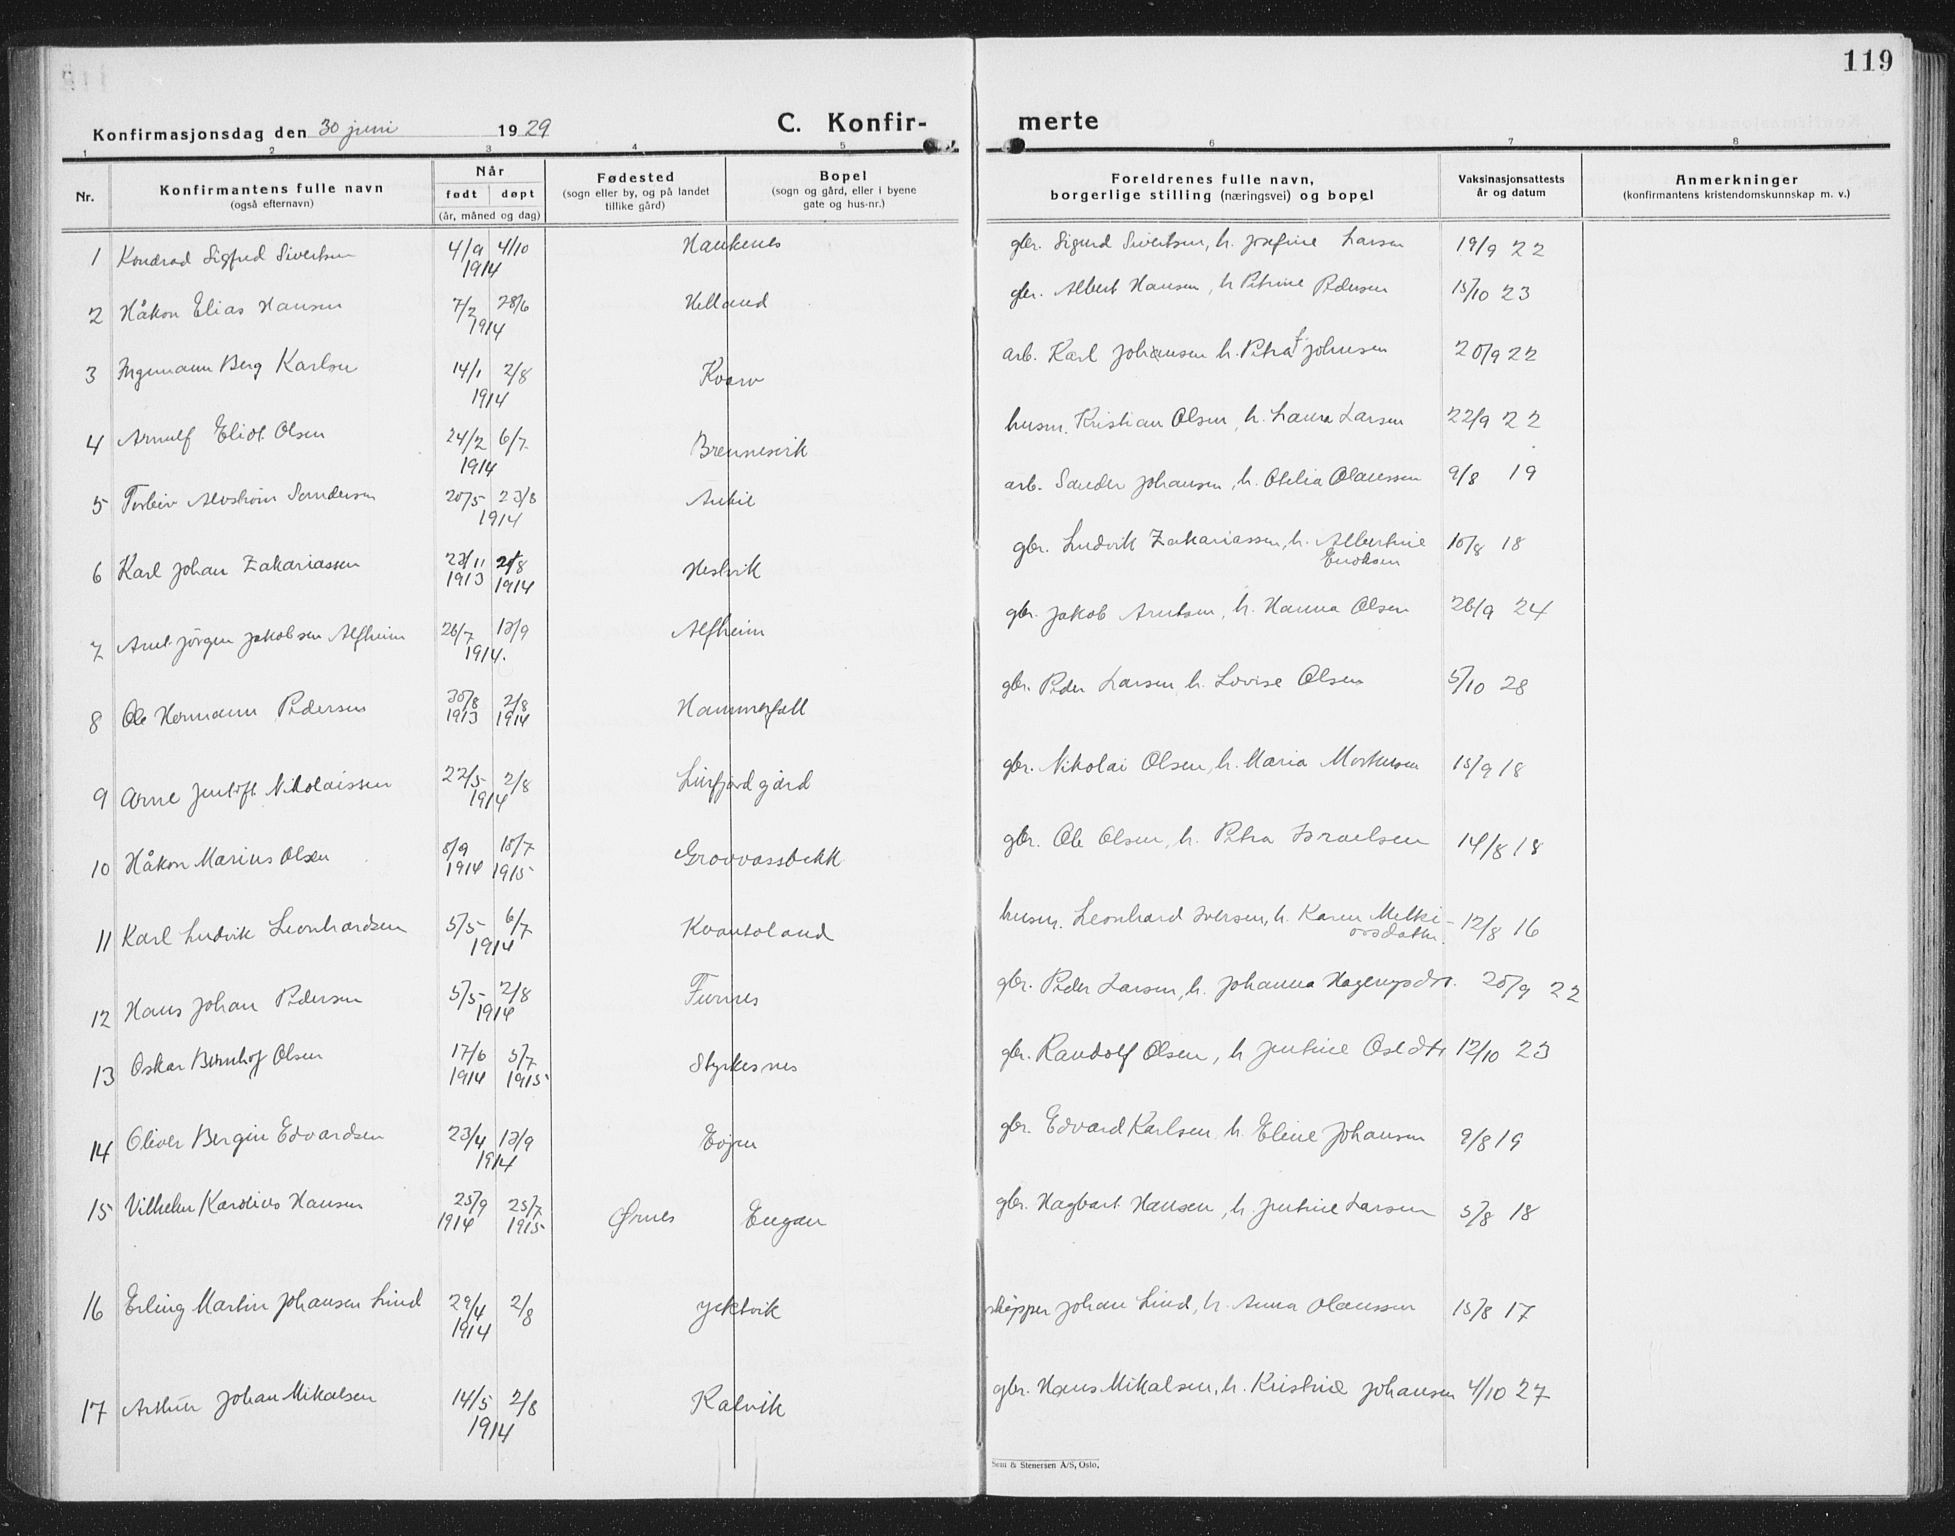 119
Konfirmasjonsdag den 30 juni 1929
C. Konfir-
merte
1 2 3 4 5 6 7 8
Nr.
Konfirmantens fulle navn
(også efternavn)
Når
født døpt
(år, måned og dag)
Fødested
(sogn eller by, og på landet
tillike gård)
Bopel
(sogn og gård, eller i byene
gate og hus-nr.)
Foreldrenes fulle navn,
borgerlige stilling (næringsvei) og bopel
Vaksinasjonsattests
år og datum
Anmerkninger
(konfirmantens kristendomskunnskap m. v.)
1 Kondrad Sigfred Sivertsen 4/9 4/10 1914 Haukenes gbr. Sigurd Sivertsen, h. Josefine Larsen 19/9 22
2 Håkon Elias Hansen 7/2 28/6 1914 Helland gbr. Albert Hansen, h. Petrine Pedersen 15/10 23
3 Ingemann Berg Karlsen 14/1 2/8 1914 Kvarv arb. Karl Johansen h. Petra Johnsen 20/9 22
4 Arnulf Eliot Olsen 24/2 6/7 1914 Brennesvik husm. Kristian Olsen, h. Laura Larsen 22/9 22
5 Torleiv Alvstrøm Sandersen 20/5 23/8 1914 arb. Sander Johansen, h. Otelia Olaussen 9/8 19
6 Karl Johan Zakariassen 23/11 1913 2/8 1914 Hestvik gbr. Ludvik Zakariassen, h. Albertine
Enoksen 10/8 18
7 Arnt Jörgen Jakobsen Alfheim 26/7 13/9 1914. Alfheim gbr. Jakob Arntsen, h. Hanna Olsen 26/9 24
8 Ole Hermann Pedersen 30/8 1913 2/8 1914 Hammerfall gbr. Peder Larsen h. Lovise Olsen 5/10 28
9 Arne Jentoft Nikolaissen 22/5 2/8 1914 Lurfjord gård gbr. Nikolai Olsen, h. Maria Mortensen 15/9 18
10 Håkon Marius Olsen 8/9 1914 18/7 1915 Grovvassbekk gbr. Ole Olsen, h. Petra Israelsen 14/8 18
11 Karl Ludvik Leonhardsen 5/5 6/7 1914 Kvantoland husm. Leonhard Iversen, h. Karen Melki-
orsdatter. 12/8 16
12 Hans Johan Pedersen 5/5 2/8 1914 Furnes gbr. Peder Larsen, h. Johanna 20/9 22
13 Oskar Bernhof Olsen 17/6 1914 5/7 1915 Styrkesnes gbr. Randolf Olsen, h. Jentine 12/10 23
14 Oliver Bergin Edvardsen 23/4 13/9 1914 Evjen gbr. Edvard Karlsen, h. Eline Johansen 9/8 19
15 Vilhelm Karolius Hansen 25/9 1914 25/7 1915 Ørnes Engan gbr. Hagbart Hansen, h. Jentine Larsen 5/8 18
16 Erling Martin Johansen Lind 29/4 2/8 1914 Jektvik skipper Johan Lind, h. Anna Olaussen 15/8 17
17 Arthur Johan Mikalsen 14/5 2/8 1914 Kalvik gbr. Hans Mikalsen, h. Kristine Johansen 4/10 27
Sem & Stenersen A/S, Oslo.